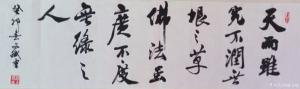 天雨雖
寬不潤無
根之草
佛法虽
廣不度
無緣之
人
癸卯